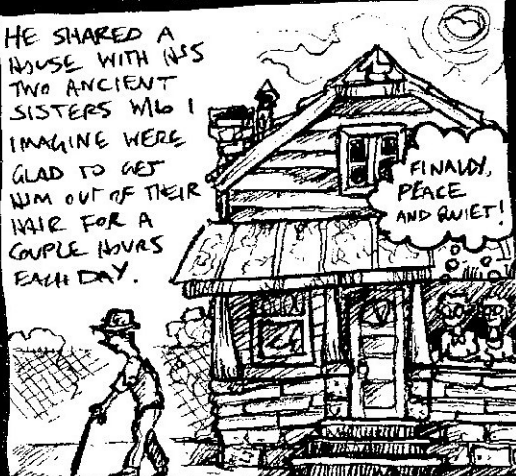 HE SHARED A
HOUSE WITH HIS
TWO ANCIENT
SISTERS WHO I
IMAGINE WERE
GLAD TO GET
HIM OUT OF THEIR
HAIR FOR A
COUPLE HOURS
EACH DAY.
FINALLY,
PEACE
AND QUIET!